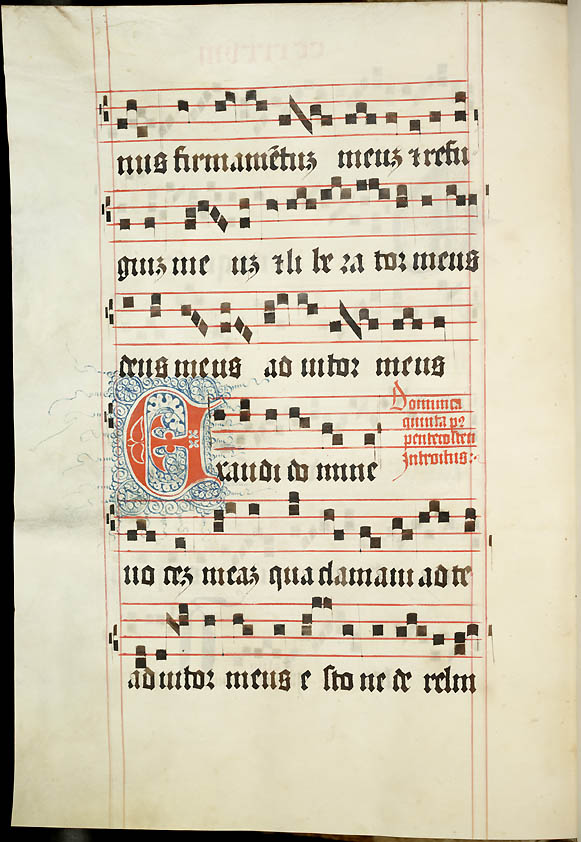 nus firmamētuʒ meuʒ ⁊ refu
giuʒ me uʒ ⁊ li be ra tor meus
deus meus ad iutor meus
Dominica
quinta pꝰ
pentecosten
Introitus:
Exaudi do mine
uo ceʒ meaʒ qua clamaui ad te
ad iutor meus e sto ne de relin